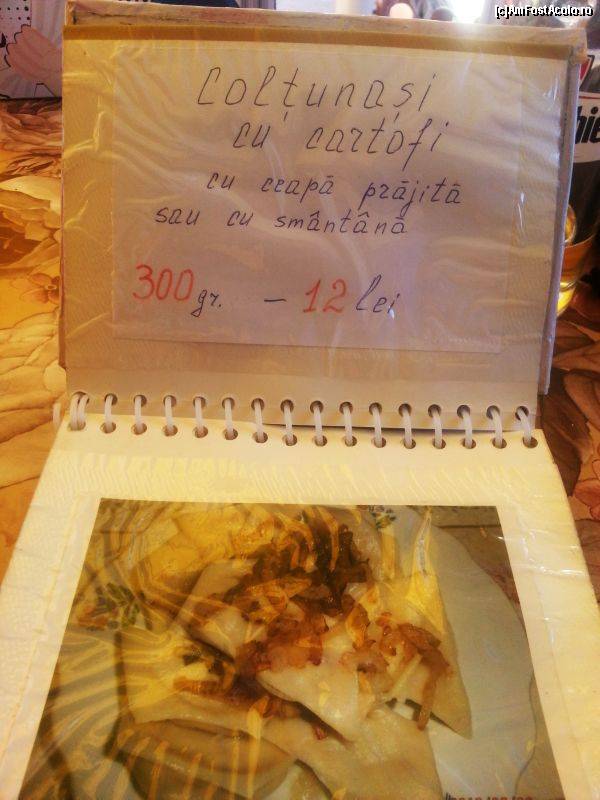 (c)AmFostAcolo.ro
Colțunași
cu cartofi
cu ceapă prăjită
sau cu smântână
300 gr. – 12 lei